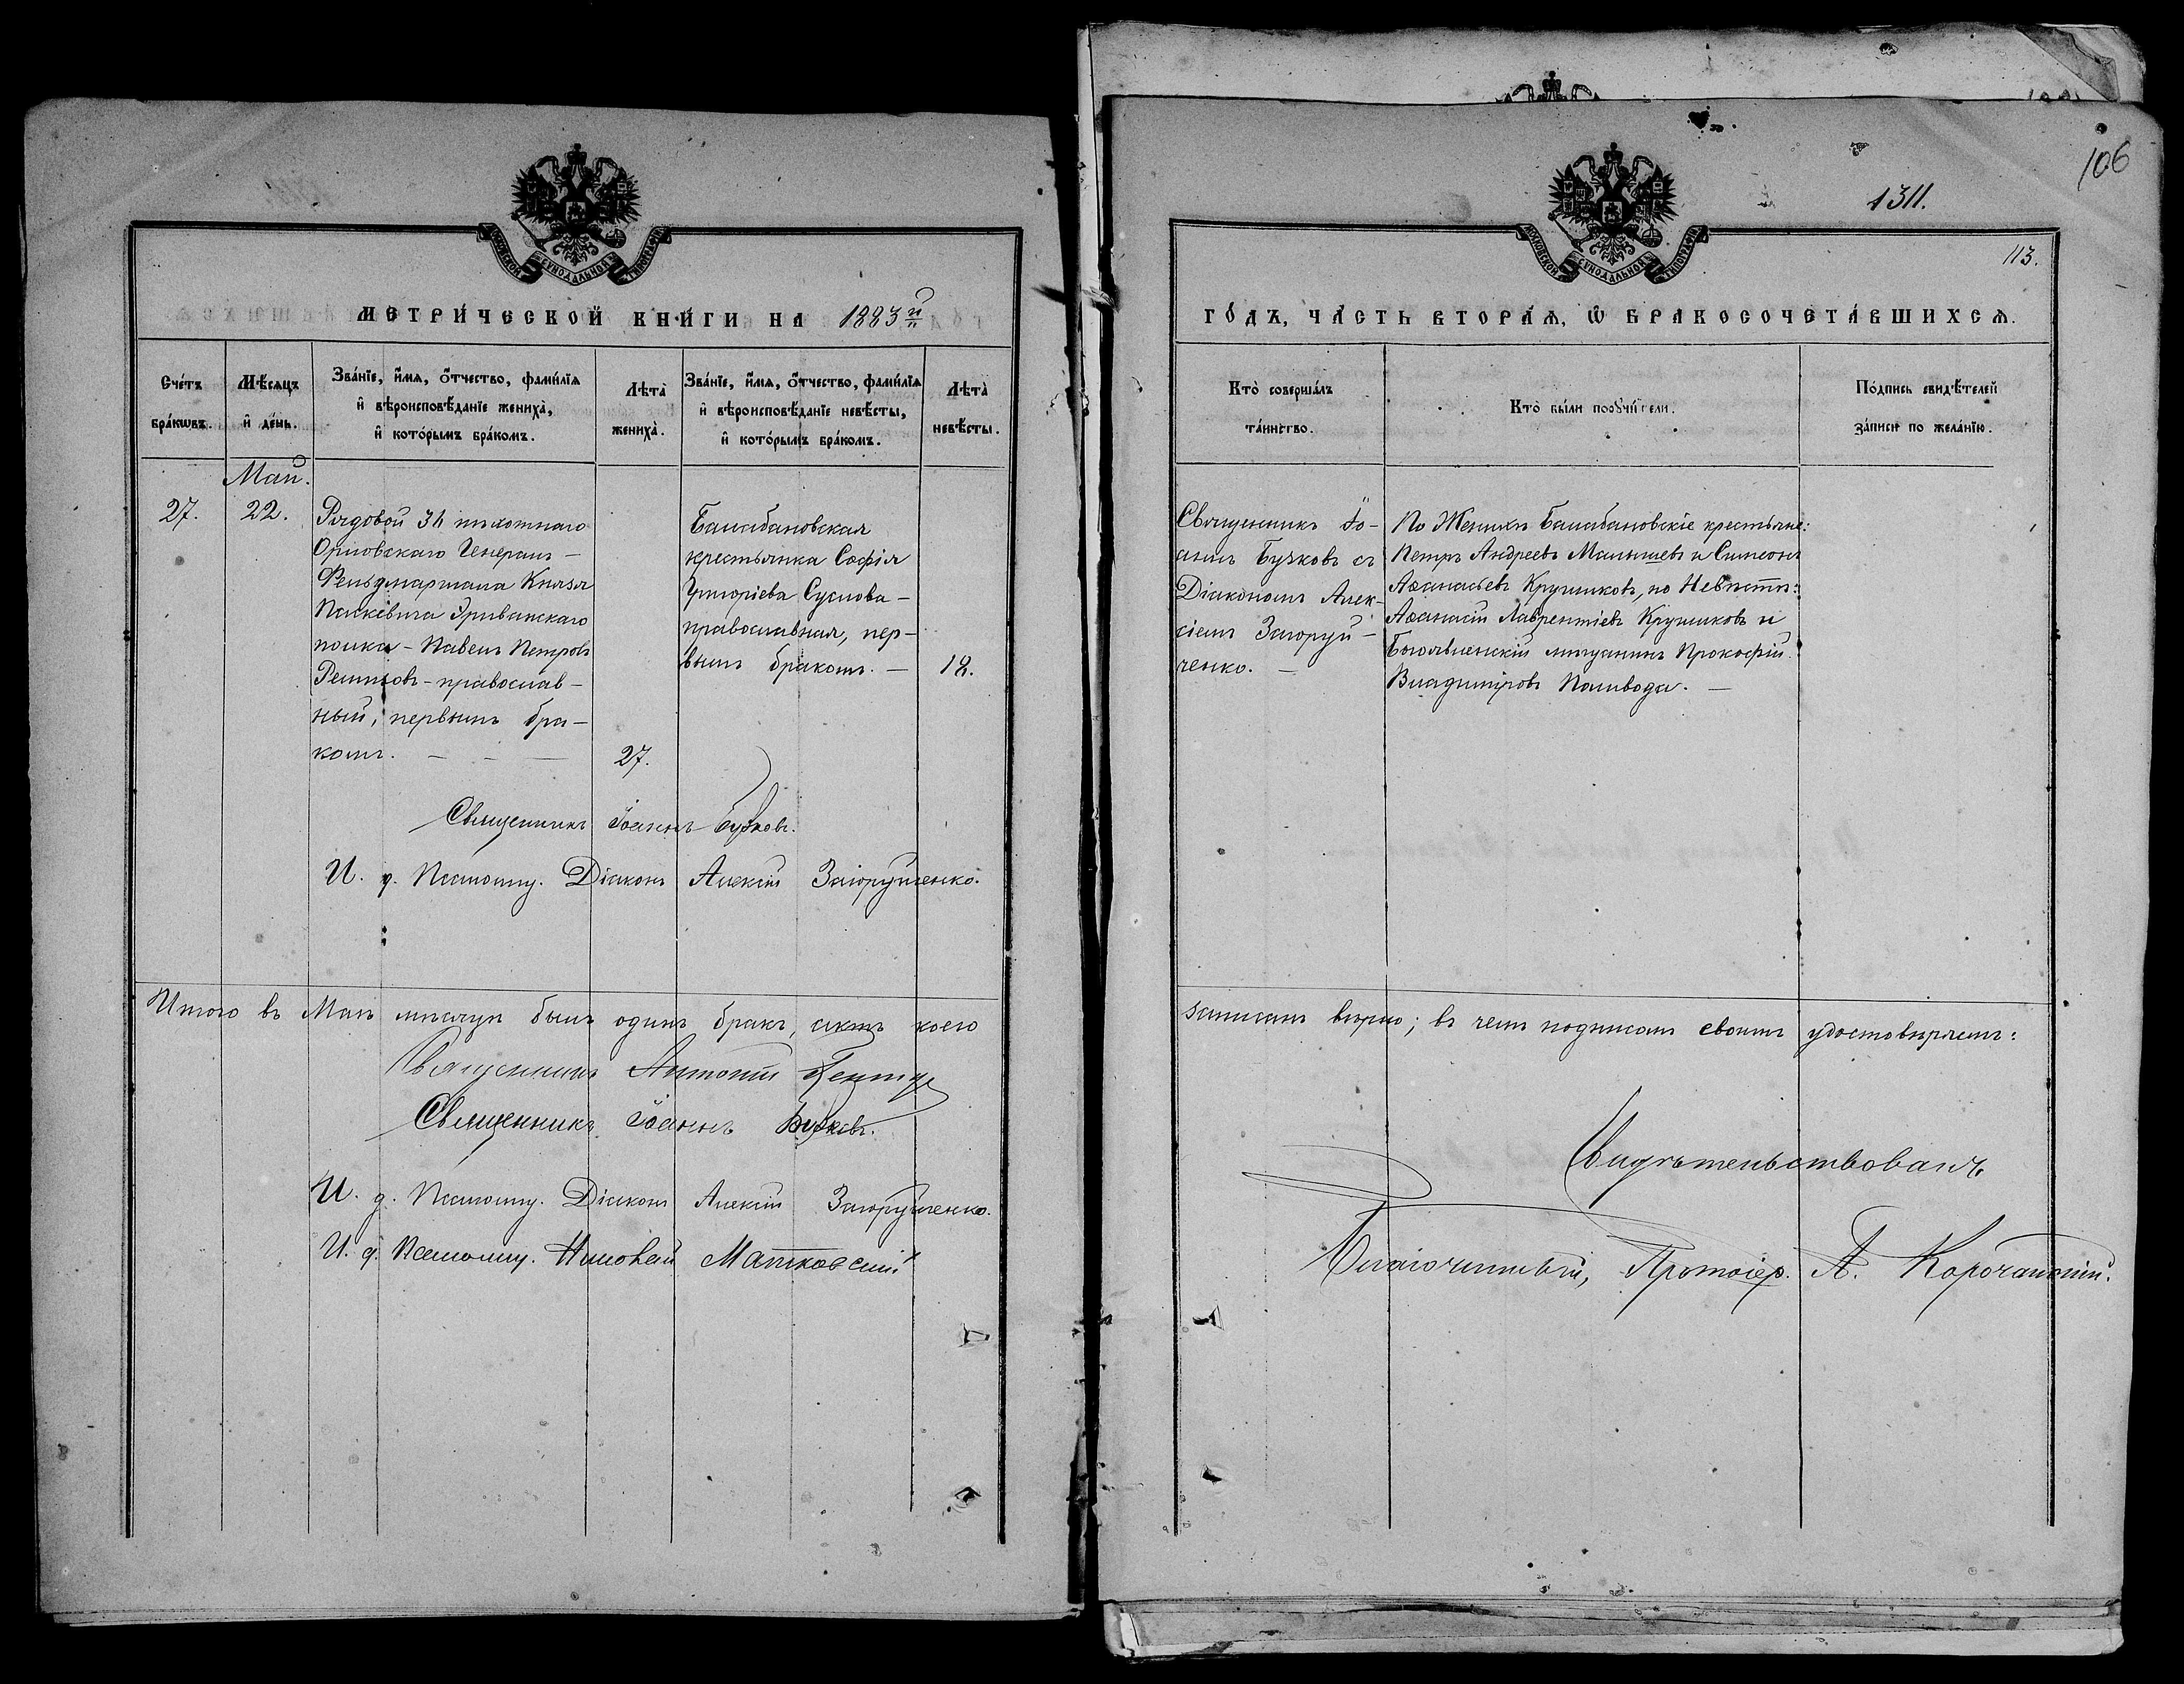 МОСКОВСКОЙ СУНОДАЛЬНОЙ ТИПОГРАФІИ
МЕТРИ́ЧЕСКОЙ КНИ́ГИ НА 1883й
Сче́тъ бра́кѡвъ.
Мѣ́сяцъ и҆ де́нь.
Зва́нїе, и҆́мѧ, ѻ҆́тчество, фами́лїѧ
и҆ вѣроисповѣ́данїе жениха̀,
и҆ кото́рымъ бра́комъ.
Лѣта̀ жениха̀.
Зва́нїе, и҆́мѧ, ѻ҆́тчество, фами́лїѧ
и҆ вѣроисповѣ́данїе невѣ́сты,
и҆ кото́рымъ бра́комъ.
Лѣта̀ невѣ́сты.
Май.
27.
22.
Рядовой 36 пѣхотнаго
Орловскаго Генералъ –
Фельдмаршала Князя
Паскевича Эриванскаго
полка – Павелъ Петровъ
православ –
ный, первымъ бра –
комъ. – – —
27.
Балабановская
крестьянка Софія
Григоріева Суслова –
православная, пер –
вымъ бракомъ. —
18.
Священникъ Іоаннъ Бучковъ.
И. д. Псаломщ. Діаконъ Алексій Загоруйченко.
Итого въ Маѣ мѣсяцѣ былъ одинъ бракъ, актъ коего
Священникъ Антоній
Священникъ Іоаннъ Бучковъ.
И. д. Псаломщ. Діаконъ Алексій Загоруйченко.
И. д. Псаломщ. Николай Матковскій
106
1311.
113.
МОСКОВСКОЙ СУНОДАЛЬНОЙ ТИПОГРАФІИ
ГО́ДЪ, ЧА́СТЬ ВТОРА́Ѧ, Ѡ҆ БРАКОСОЧЕТА́ВШИХСѦ.
Кто̀ соверша́лъ
та́инство.
Кто̀ бы́ли поручи́тели.
По́дпись свидѣ́телей
за́писи по жела́нїю.
Священникъ Іо –
аннъ Бучковъ съ
Діакономъ Алек –
сіемъ Загоруй –
ченко. —
По Женихѣ Балабановскіе крестьяне:
Петръ Андреевъ Малышевъ и Симеонъ
Аѳанасьевъ Кругликовъ, по Невѣстѣ:
Аѳанасій Лаврентіевъ Кругликовъ и
Богоявленскій мѣщанинъ Прокофій
Владиміровъ Паливода. —
записанъ вѣрно; въ чемъ подписомъ своимъ удостовѣряемъ:
Свидѣтельствовалъ
Благочинный, Протоіер. А. Корочанскій.